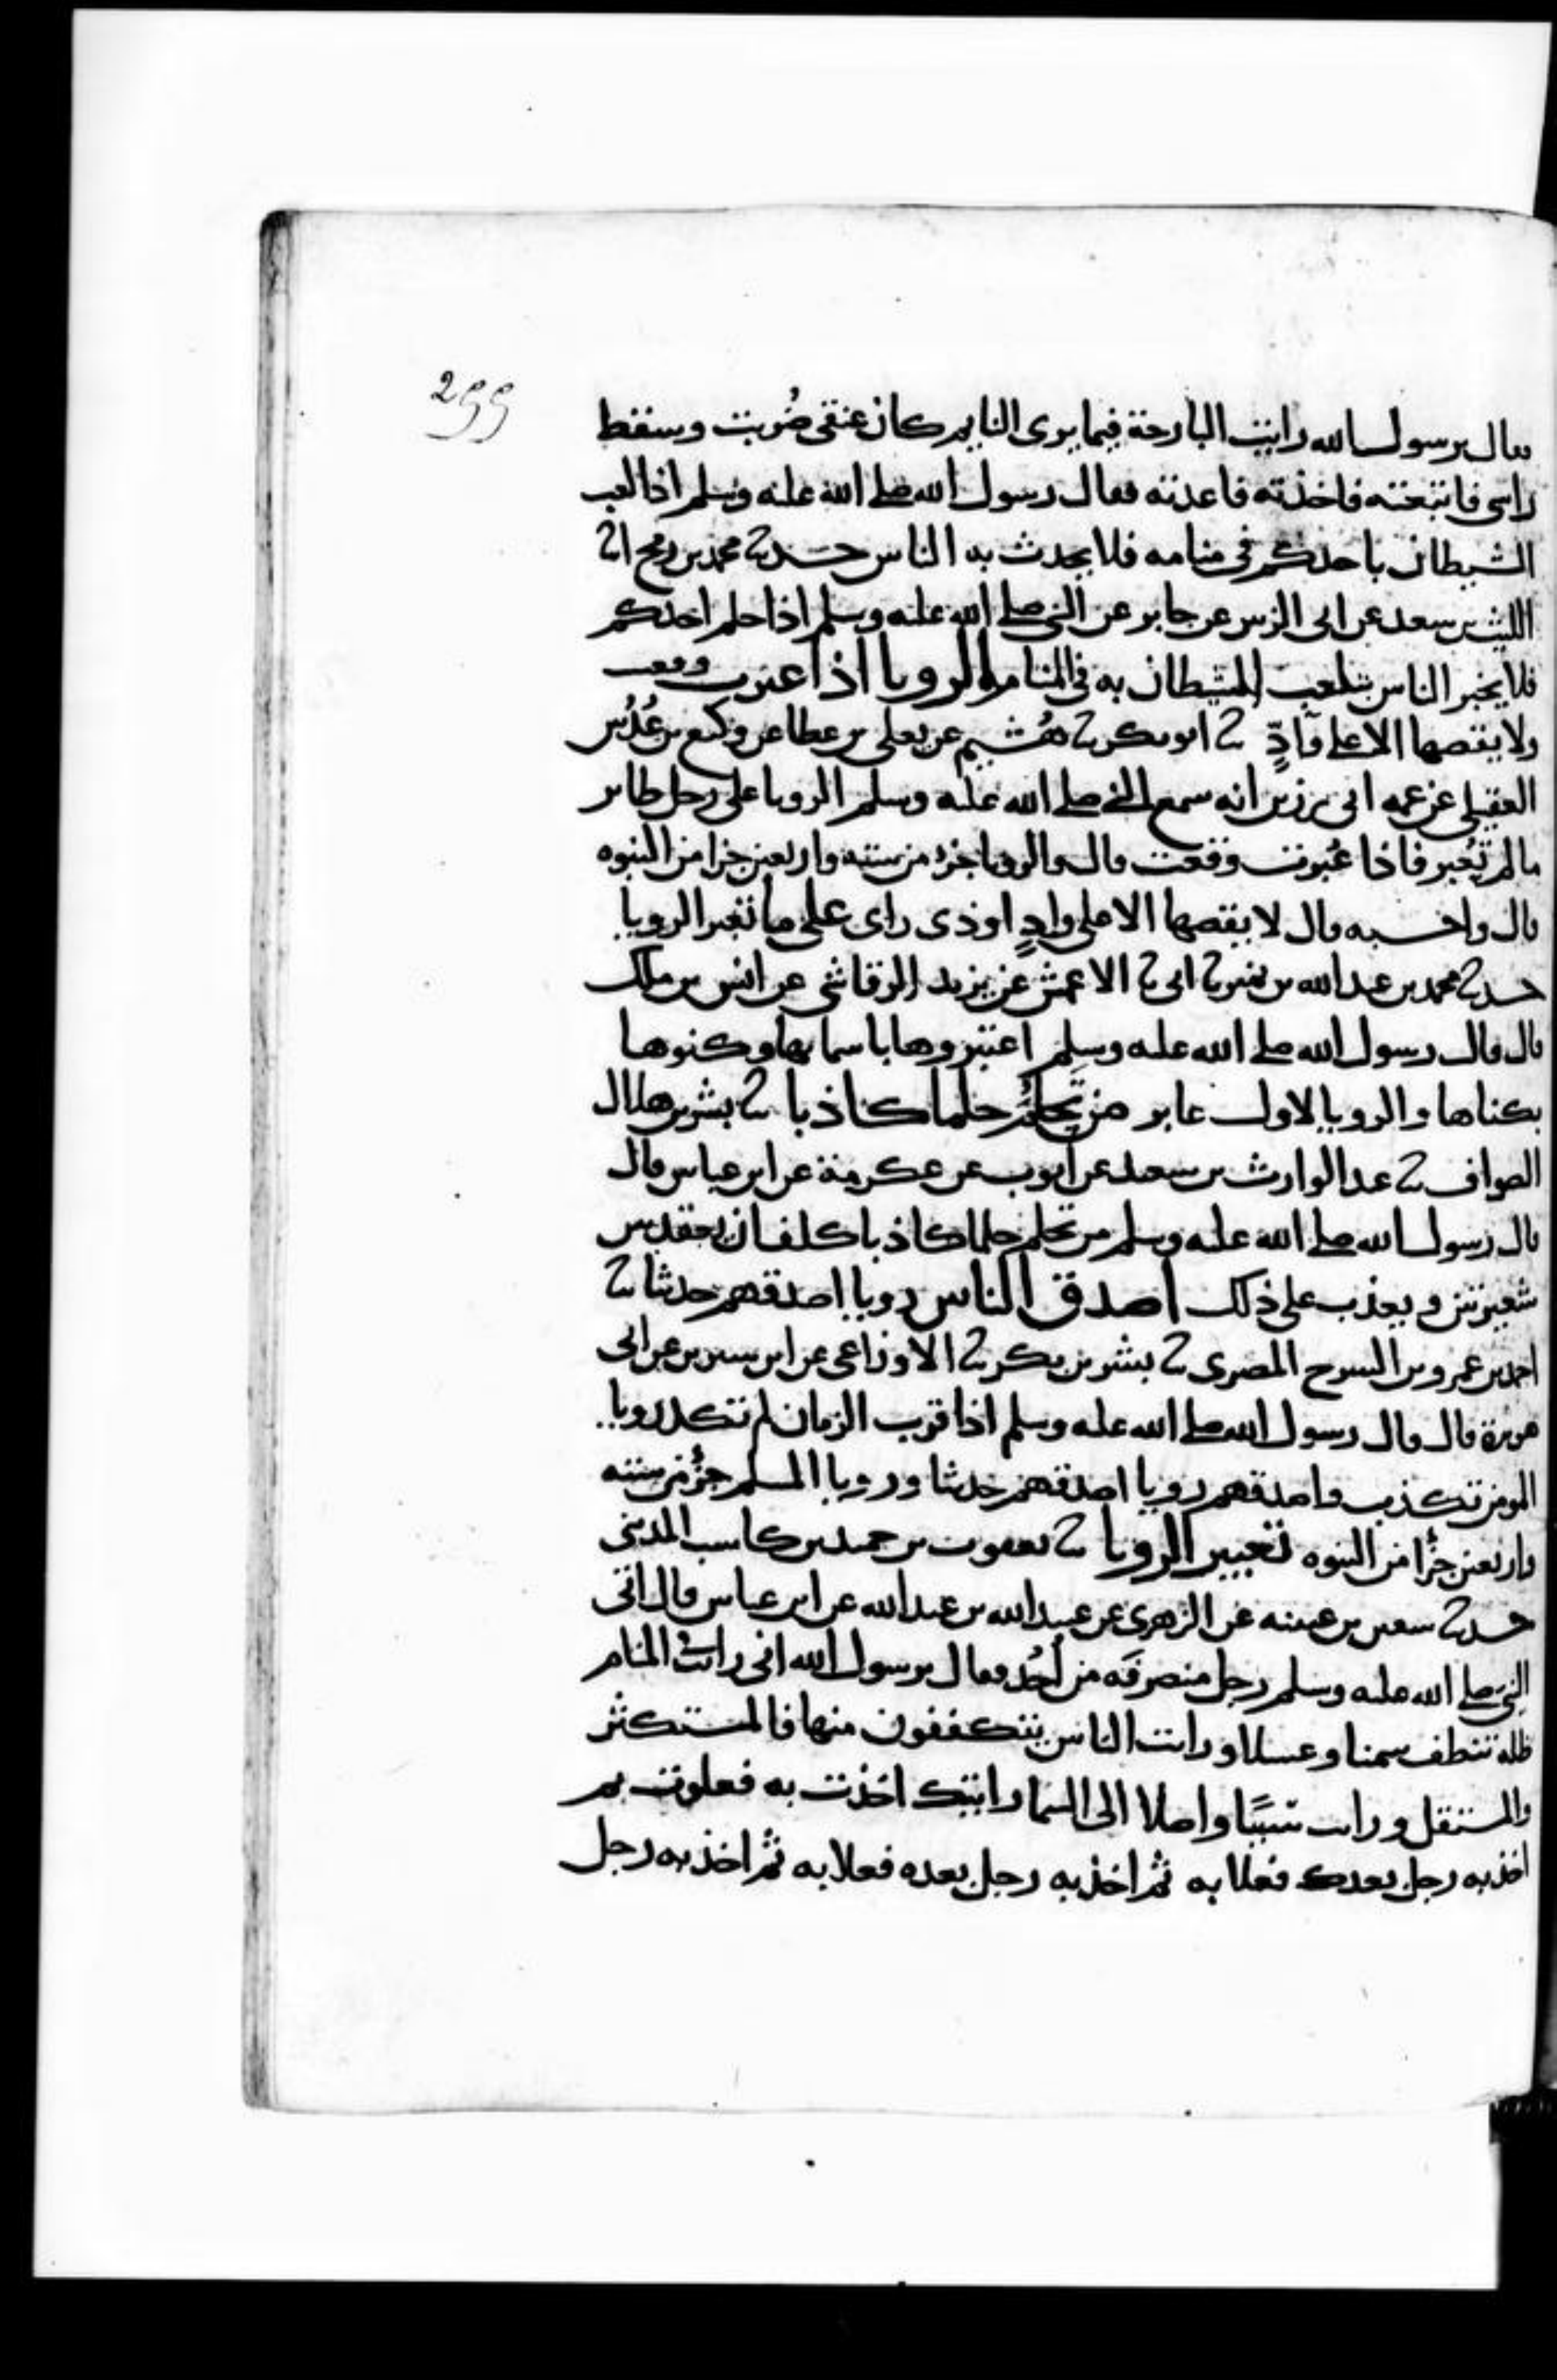 299
فقال يرسول الله رايت البارحة فيما يرى النايم كان عنقى ضُربت وسقط
راسى فاتبعته فاخذته فاعدته فقال رسول الله صلى الله عليه وسلم اذا لعب
الشيطان باحدكم فى منامه فلا يحدث به الناس حدثنا محمد بن رمح انا
الليث بن سعد عن ابى الزبير عن جابر عن النبى صلى الله عليه وسلم اذا حلم احدكم
فلا يخبر الناس بتلعب الشيطان به فى المنام الرويا اذا عبرت وقعت
ولا يقصها الا على وَادٍّ ثنا ابو بكر ثنا هُشيم عن يعلى بن عطا عن وكيع بن عُدُس
العقيلى عن عمه ابى رزين انه سمع النبى صلى الله عليه وسلم الرويا على رجل طاير
ما لم تُعبر فاذا عُبرت وقعت قال والرويا جزء من ستة واربعين جزا من النبوه
قال واحسبه قال لا يقصها الا على وادٍ او ذى راى على ما تعبر الرويا
حدثنا محمد بن عبد الله بن نمير ثنا ابى ثنا الاعمش عن يزيد الرقاشى عن انس بن ملك
قال قال رسول الله صلى الله عليه وسلم اعتبروها باسمايها وكنوها
بكناها والرويا لاول عابر من تَحلَّم حلما كاذبا ثنا بشر بن هلال
الصواف ثنا عبد الوارث بن سعيد عن ايوب عن عكرمة عن ابن عباس قال
قال رسول الله صلى الله عليه وسلم من تحلم حلما كاذبا كلف ان يعقد بين
شعيرتين ويعذب على ذلك اصدق الناس رويا اصدقهم حديثا ثنا
احمد بن عمرو بن السرح المصرى ثنا بشر بن بكر ثنا الاوزاعى عن ابن سيرين عن ابى
هريرة قال قال رسول الله صلى الله عليه وسلم اذا قرب الزمان لم تكد رويا
المومن تكذب واصدقهم رويا اصدقهم حديثا ورويا المسلم جزُء من ستة
واربعين جزُا من النبوه تعبير الرويا ثنا يعقوب بن حميد بن كاسب المدينى
حدثنا سفين بن عيينه عن الزهرى عن عبيد الله بن عبد الله عن ابن عباس قال اتى
النبى صلى الله عليه وسلم رجل منصرفَه من أُحُد فقال يرسول الله انى رايت فى المنام
ظلة تنطف سمنا وعسلا ورايت الناس يتكففون منها فالمستكثر
والمستقل ورايت سببًا واصلا الى السما رايتك اخذت به فعلوت ثم
اخذ به رجل بعدك فعلا به ثم اخذ به رجل بعده فعلا به ثم اخذ به رجل